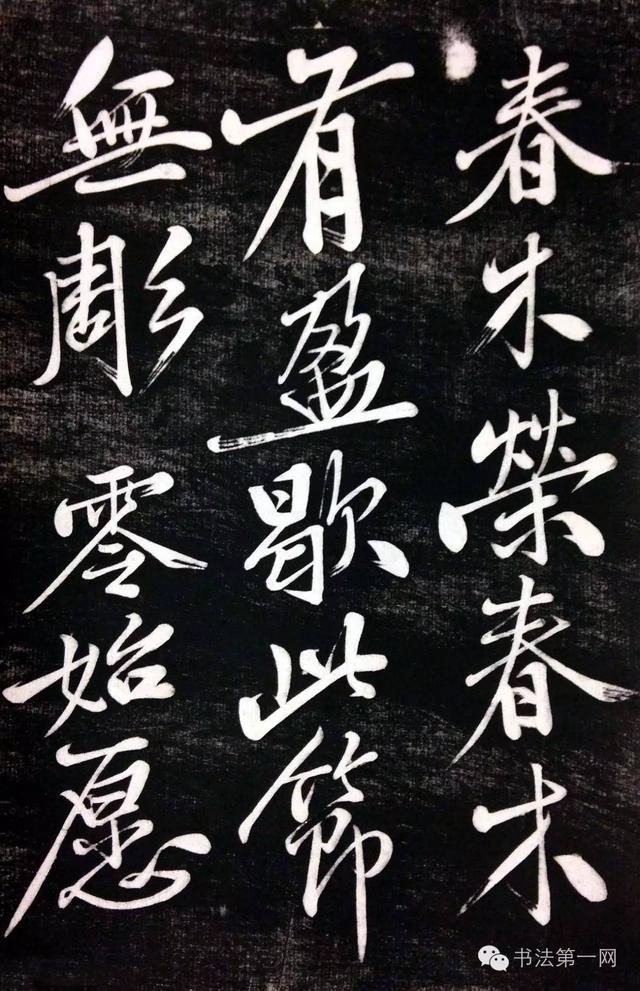 春木榮春木
有盈歇此節
無彫零始愿
书法第一网